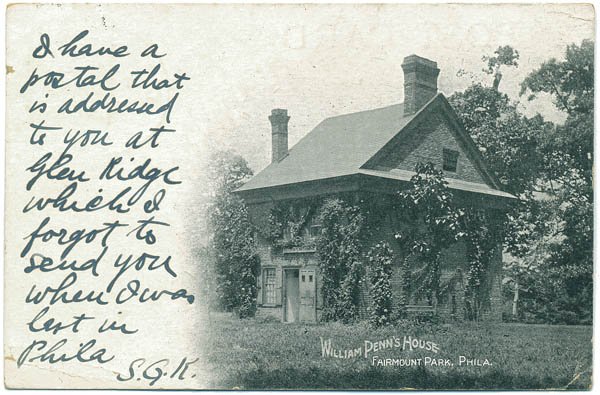 I have a
postal that
is addressed
to you at
Glen Ridge
which I
forgot to
send you
when I was
last in
Phila
S.G.K.
WILLIAM PENN'S HOUSE
FAIRMOUNT PARK, PHILA.